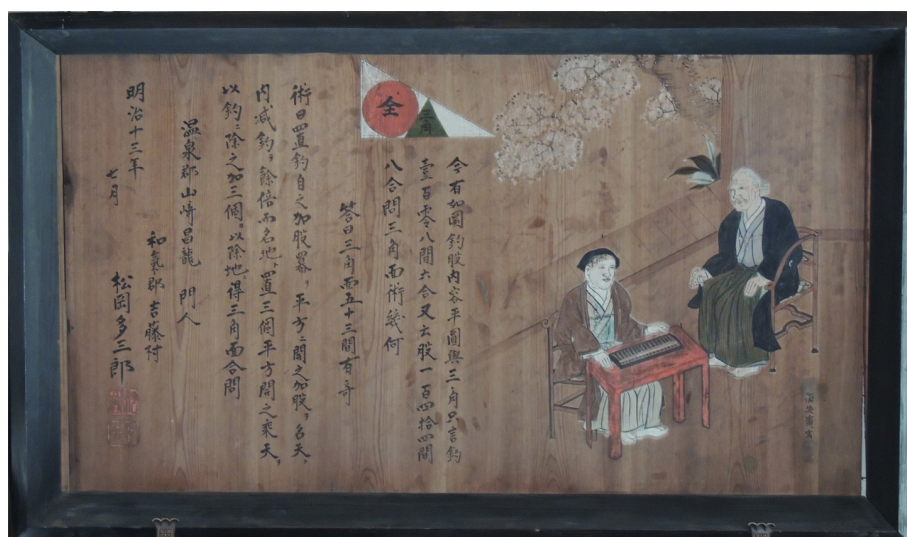 全
三角
今有如圖鈎股内容平圓與三角只言鈎
壹百零八間六合又云股一百四拾四間
八合問三角面術幾何
答曰三角面五十三間有奇
術曰置鈎自之加股冪平方ニ開之加股名天
内減鈎餘倍而名地置三個平方開之乘天
以鈎除之加三個以除地得三角面合問
温泉郡山崎昌龍 門人
和氣郡 吉藤村
松岡多三郎
明治十三年
七月